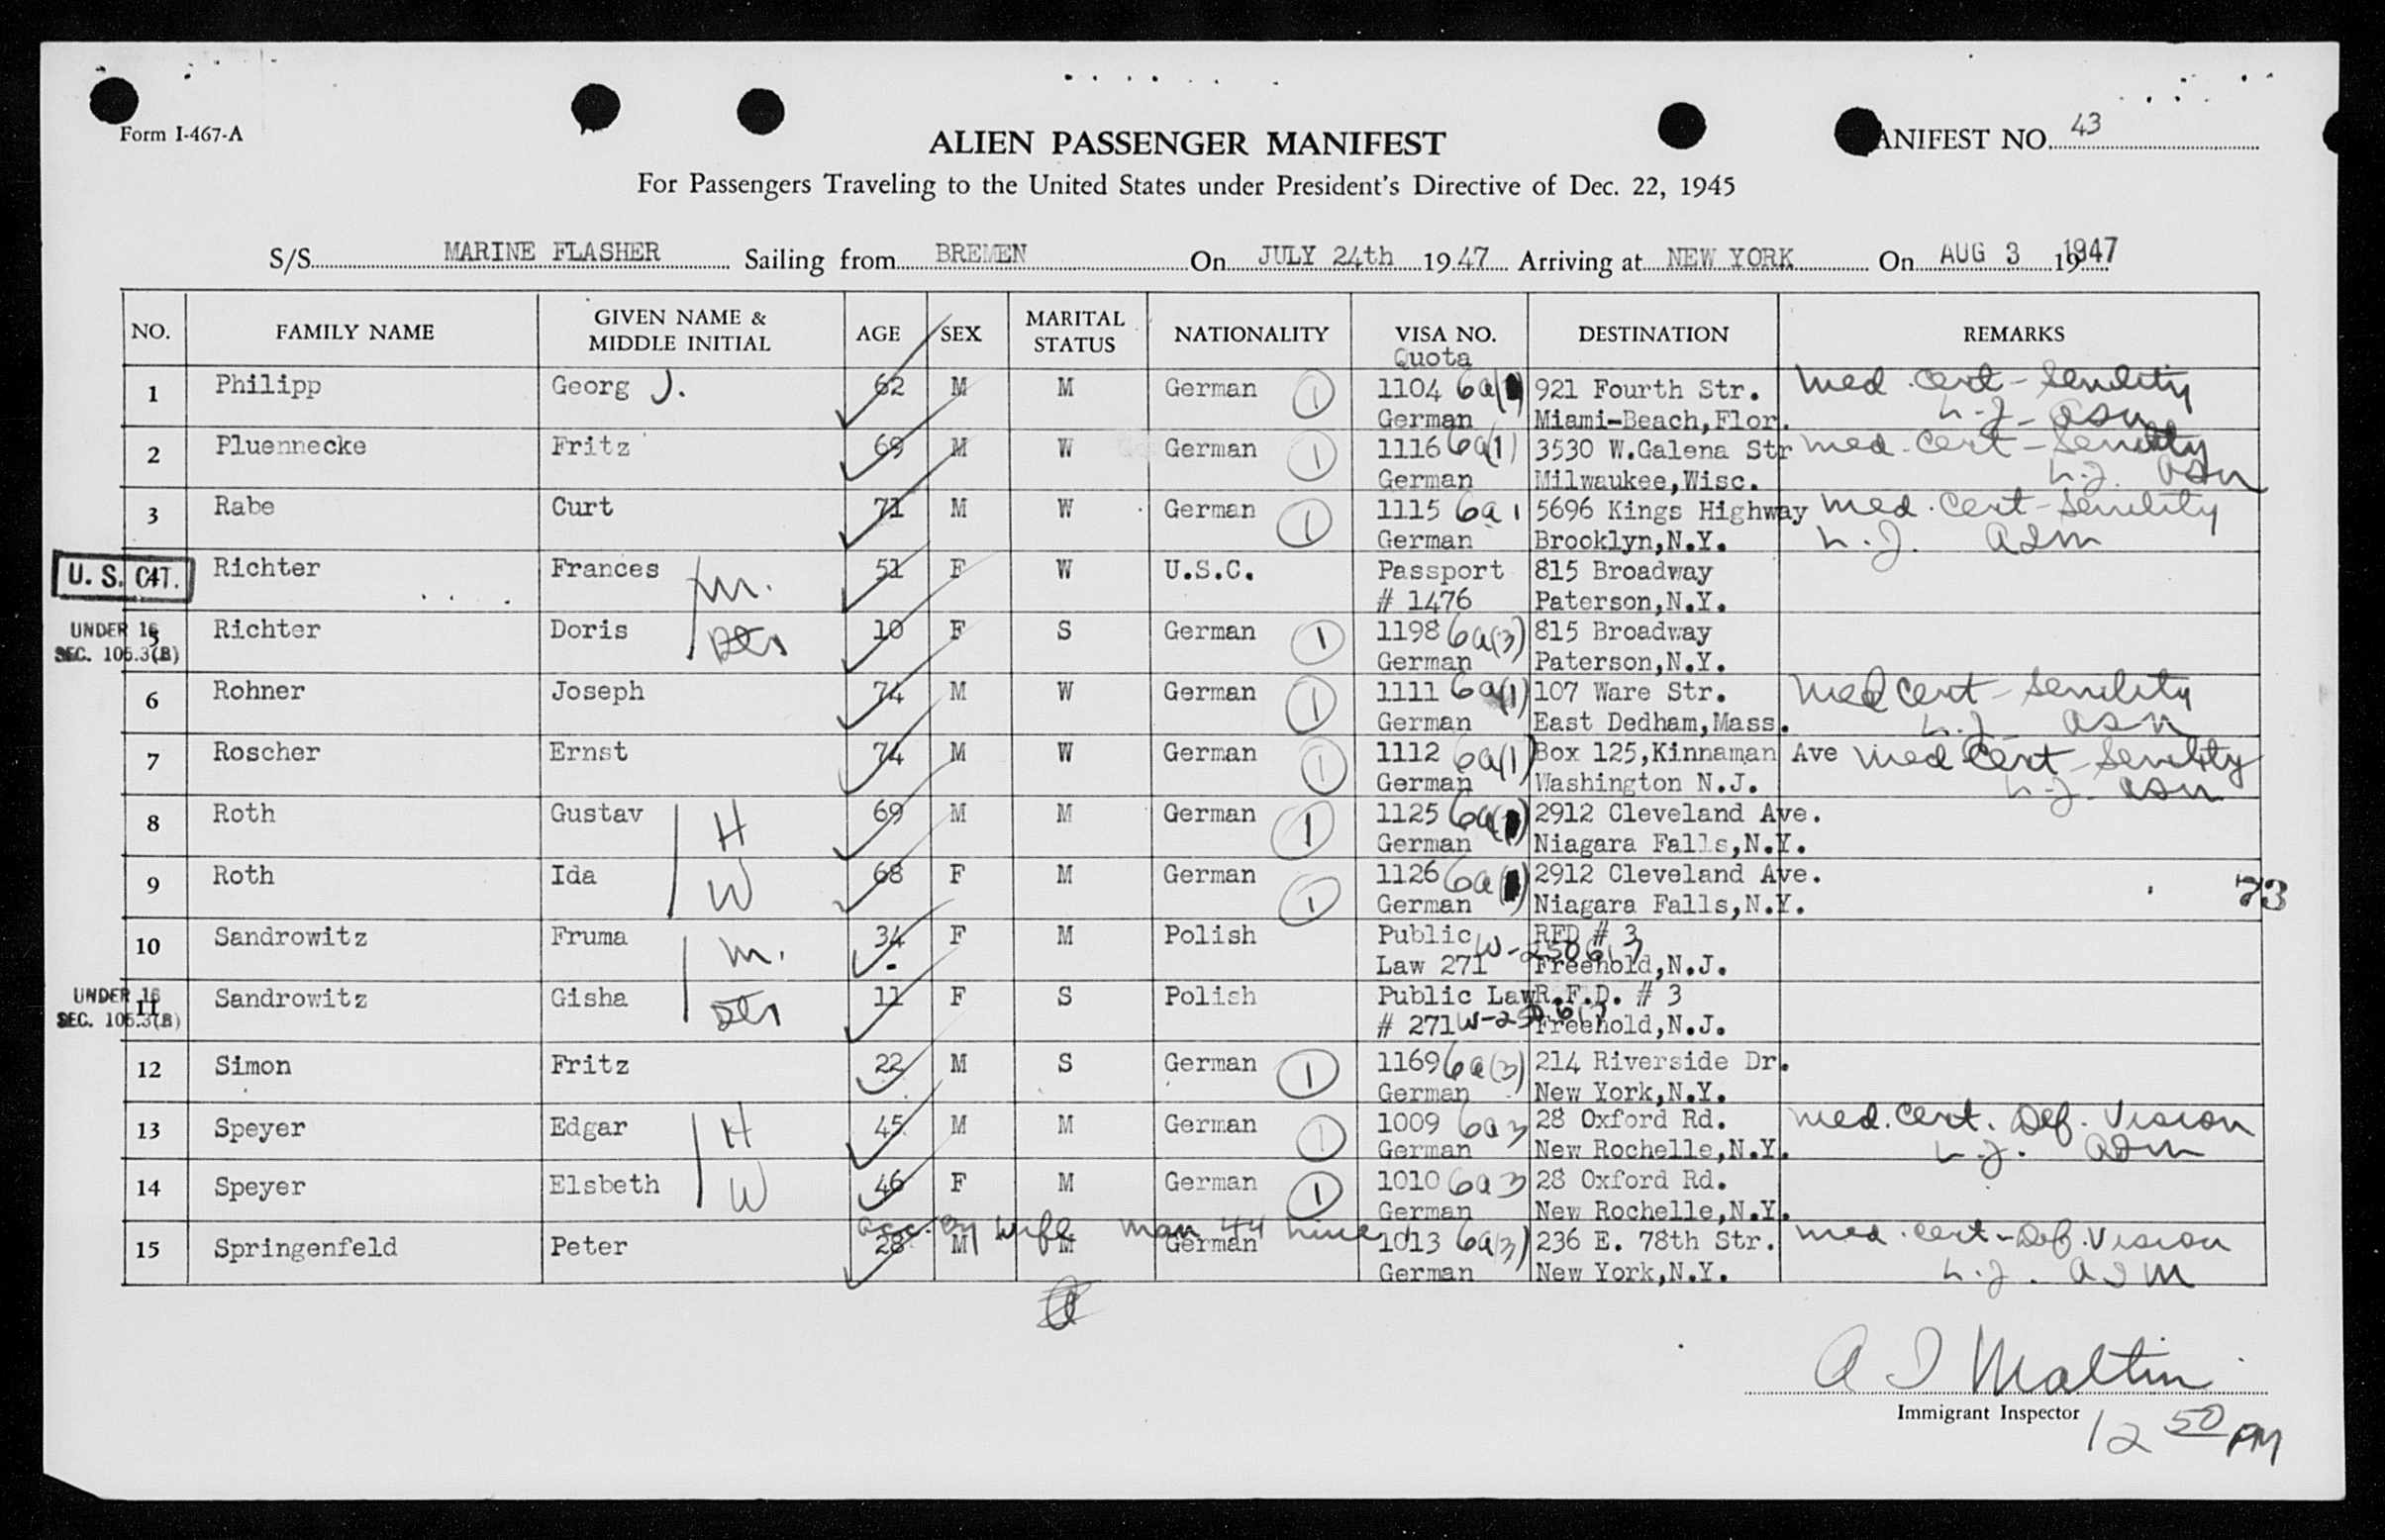 Form I-467-A
ALIEN PASSENGER MANIFEST
MANIFEST NO. 43
For Passengers Traveling to the United States under President's Directive of Dec. 22, 1945
S/S MARINE FLASHER Sailing from BREMEN On JULY 24th 1947 Arriving at NEW YORK On AUG 3 1947
NO. FAMILY NAME GIVEN NAME & MIDDLE INITIAL AGE SEX MARITAL STATUS NATIONALITY VISA NO. DESTINATION REMARKS
Quota
1 Philipp Georg J. 62 M M German 1 1104 6a( 921 Fourth Str. Med. cert - Senility
German Miami-Beach, Flor.
2 Pluennecke Fritz 69 M W German 1 1116 6a(1) 3530 W.Galena Str med. cert - Senility
German Milwaukee,Wisc.
3 Rabe Curt 71 M W German 1 1115 6a 1 5696 Kings Highway med. cert - Senility
German Brooklyn,N.Y. A I M
U. S. CIT. Richter Frances m. 51 F W U.S.C. Passport 815 Broadway
# 1476 Paterson,N.Y.
UNDER 16 5 Richter Doris 10 F S German 1 1198 6a(3) 815 Broadway
SEC. 105.3(B) German Paterson,N.Y.
6 Rohner Joseph 74 M W German 1 1111 6a(1) 107 Ware Str. Med cert - Senility
German East Dedham,Mass.
7 Roscher Ernst 74 M W German 1 1112 6a(1) Box 125,Kinnaman Ave Med Cert - Senility
German Washington N.J.
8 Roth Gustav H 69 M M German 1 1125 6a( ) 2912 Cleveland Ave.
German Niagara Falls,N.Y.
9 Roth Ida W 68 F M German 1 1126 6a( ) 2912 Cleveland Ave. 73
German Niagara Falls,N.Y.
10 Sandrowitz Fruma m. 34 F M Polish Public RFD # 3
Law 271 W-250617 Freehold,N.J.
UNDER 16 11 Sandrowitz Gisha 11 F S Polish Public Law R.F.D. # 3
SEC. 105.3(B) # 271 Freehold,N.J.
12 Simon Fritz 22 M S German 1 1169 6a(3) 214 Riverside Dr.
German New York,N.Y.
13 Speyer Edgar H 45 M M German 1 1009 6a3 28 Oxford Rd. med. cert. Def. Vision
German New Rochelle,N.Y. A I M
14 Speyer Elsbeth W 46 F M German 1 1010 6a3 28 Oxford Rd.
German New Rochelle,N.Y.
acc. by wife man 44 line
15 Springenfeld Peter 28 M M German 1013 6a(3) 236 E. 78th Str. med. cert - Def. Vision
German New York,N.Y. A I M
A I Maltin
Immigrant Inspector
12 50 PM